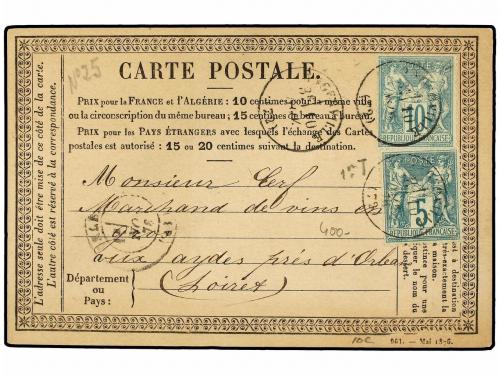 Nº25
CARTE POSTALE.
PRIX pour la FRANCE et l'ALGÉRIE: 10 centimes pour la même ville
ou la circonscription du même bureau; 15 centimes de bureau à bureau.
PRIX pour les PAYS ÉTRANGERS avec lesquels l'échange des Cartes
postales est autorisé: 15 ou 20 centimes suivant la destination.
L'adresse seule doit être mise de ce côté de la carte.
L'autre côté est réservé à la correspondance.
POSTE
10
RÉPUBLIQUE FRANÇAISE
POSTE
5
RÉPUBLIQUE FRANÇAISE
15 T
Monsieur Cerf
Marchand de vins en
400-
aux aydes près d'Orléan
(Loiret)
Département
ou
Pays:
10C
961. — Mai 18-6.